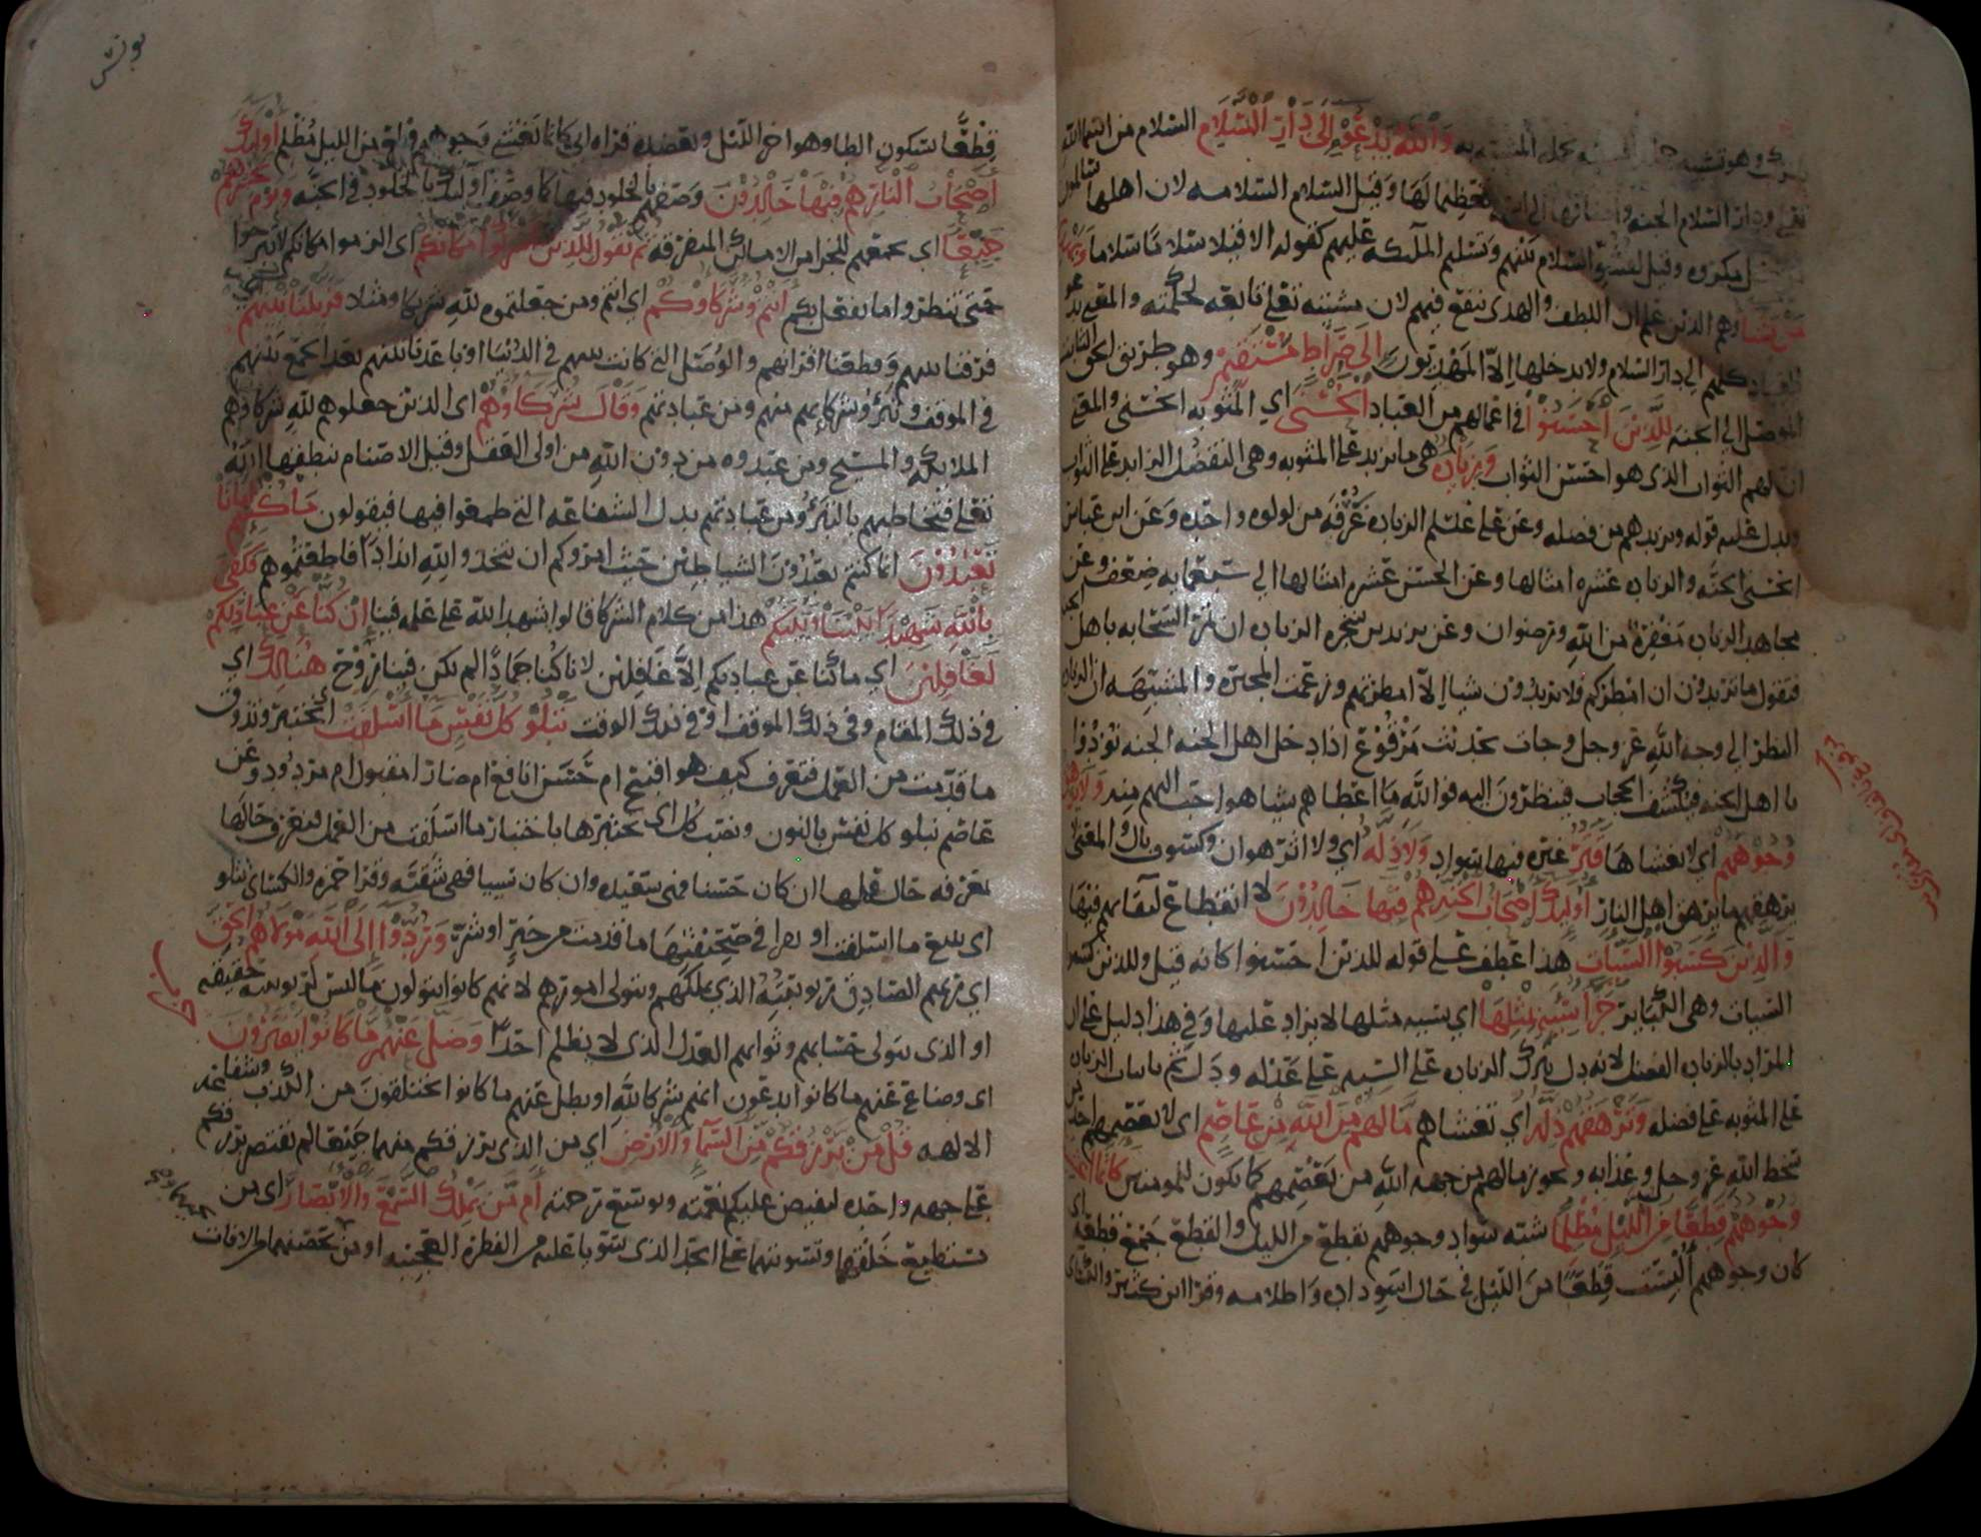 وهو تشبيه والله يدعو إلى دار السلام السلام من اسماء الله
تعالى ودار السلام الجنه واضافها الى اسمه تعظيما لها وقيل السلام السلامه لان اهلها سالمون
مكروه وقيل لفشو السلام بينهم وتسليم الملائكه عليهم كقوله الا قيلا سلاما سلاما ويهدي
من يشا وهم الذين علم ان اللطف والهدى ينفع فيهم لان مشيته تعالى تابعه لحكمته والمعنى يدعو
العباد كلهم الى دار السلام ولا يدخلها الا المهديون الى صراط مستقيم وهو طريق الحق
الموصل الى الجنه للذين احسنوا في اعمالهم من العباد الحسنى اي المثوبه الحسنى والمعنى
ان لهم الثواب الذي هو احسن الثواب وزياده هي ما يزيد على المثوبه وهي التفضل الزايد على الثواب
ويدل عليه قوله ويزيدهم من فضله وعن علي عليلم الزياده غرفه من لولوه واحده وعن ابن عباس
الحسنى الجنه والزياده عشره امثالها وعن الحسن عشره امثالها الى سبعمايه ضعف وعن
مجاهد الزياده مغفره من الله ورضوان وعن يزيد بن شجره الزياده ان تمر السحابه باهل الجنه
فتقول ما تريدون ان امطركم فلا يريدون شيا الا امطرتهم وزعمت المجبره والمشبهه ان الزياده
النظر الى وجه الله عز وجل وجات بحديث مرفوع اذا دخل اهل الجنه الجنه نودوا
يا اهل الجنه فيكشف الحجاب فينظرون اليه فوالله ما اعطاهم شيا هو احب اليهم منه ولا يرهق
وجوههم اي لا يغشاها قتر غبره فيها سواد ولا ذله اي ولا اثر هوان وكسوف بال والمعنى لا
يرهقهم ما يرهق اهل النار اوليك اصحاب الجنه هم فيها خالدون لا انقطاع لبقايهم فيها
والذين كسبوا السيات هذا عطف على قوله للذين احسنوا كانه قيل وللذين كسبوا
السيات وهي الكباير جزا سيئه بمثلها اي سيئه مثلها لا يزاد عليها وفي هذا دليل على ان
المراد بالزياده الفضل لانه دل بترك الزياده على السيئه على عدله ودل ثم باثبات الزياده
على المثوبه على فضله وترهقهم ذله اي تغشاهم ما لهم من الله من عاصم اي لا يعصمهم احد من
سخط الله عز وجل وعذابه ويجوز ما لهم من جهه الله من يعصمهم كما يكون للمومنين كانما اغشيت
وجوههم قطعا من الليل مظلما شبه سواد وجوههم بقطع من الليل والقطع جمع قطعه اي
كان وجوههم البست قطعا من الليل في حال اسوداده واظلامه وقرا ابن كثير والكساي
يونس
قطعا بسكون الطا وهو اخر الليل ويعضده قراه ابي كانما تغشى وجوههم قطع من الليل مظلم اوليك
اصحاب النار هم فيها خالدون وصفهم بالخلود فيها كما وصف اوليك بالخلود في الجنه ويوم نحشرهم
جميعا اي نجمعهم للجزا من الاماكن المتفرقه ثم نقول للذين اشركوا مكانكم اي الزموا مكانكم لا تبرحوا
حتى تنظروا ما يفعل بكم انتم وشركاوكم اي انتم ومن جعلتموه لله شريكا ومثلا فزيلنا بينهم اي
فرقنا بينهم وقطعنا اقرانهم والوصل التي كانت بينهم في الدنيا او باعدنا بينهم بعد الجمع بينهم
في الموقف وتبرؤ شركايهم منهم ومن عبادتهم وقال شركاوهم اي الذين جعلوهم لله شركا وهم
الملايكه والمسيح ومن عبدوه من دون الله من اولى العقل وقيل الاصنام ينطقها الله
تعالى فتخاطبهم بالتبرؤ من عبادتهم بدل الشفاعه التي طمعوا فيها فيقولون ما كنتم ايانا
تعبدون انما كنتم تعبدون الشياطين حيث امروكم ان تتخذوا لله اندادا فاطعتموهم فكفى
بالله شهيدا بيننا وبينكم هذا من كلام الشركا قالوا شهد الله على علمه فينا ان كنا عن عبادتكم
لغافلين اي ما كنا عن عبادتكم الا غافلين لانا كنا جمادا لم يكن فينا روح هنالك اي
في ذلك المقام وفي ذلك الموقف او في ذلك الوقت تبلو كل نفس ما اسلفت اي تختبر وتذوق
ما قدمت من العمل فتعرف كيف هو اقبيح ام حسن انافع ام ضار امقبول ام مردود وعن
عاصم نبلو كل نفس بالنون ونصب كل اي نختبرها باختبار ما اسلفت من العمل فنعرف حالها
بمعرفه حال عملها ان كان حسنا فهي سعيده وان كان سييا فهي شقيه وقرا حمزه والكساي تتلو
اي تتبع ما اسلفت او تقرا في صحيفتها ما قدمت من خير او شر وردوا الى الله مولاهم الحق
اي ربهم الصادق ربوبيته الذي يملكهم ويتولى امورهم لانهم كانوا يتولون ما ليس لربوبيته حقيقه
او الذي يتولى حسابهم وثوابهم العدل الذي لا يظلم احدا وضل عنهم ما كانوا يفترون
اي وضاع عنهم ما كانوا يدعون انهم شركا لله او بطل عنهم ما كانوا يختلقون من الكذب وشفاعه
الالهه قل من يرزقكم من السما والارض اي من الذي يرزقكم منهما جميعا لم يقتصر برزقكم
على جهه واحده ليفيض عليكم نعمته ويوسع رحمته ام من يملك السمع والابصار اي من
يستطيع خلقهما وتسويتهما على الحد الذي سويا عليه من الفطره العجيبه او من يحصنهما من الافات